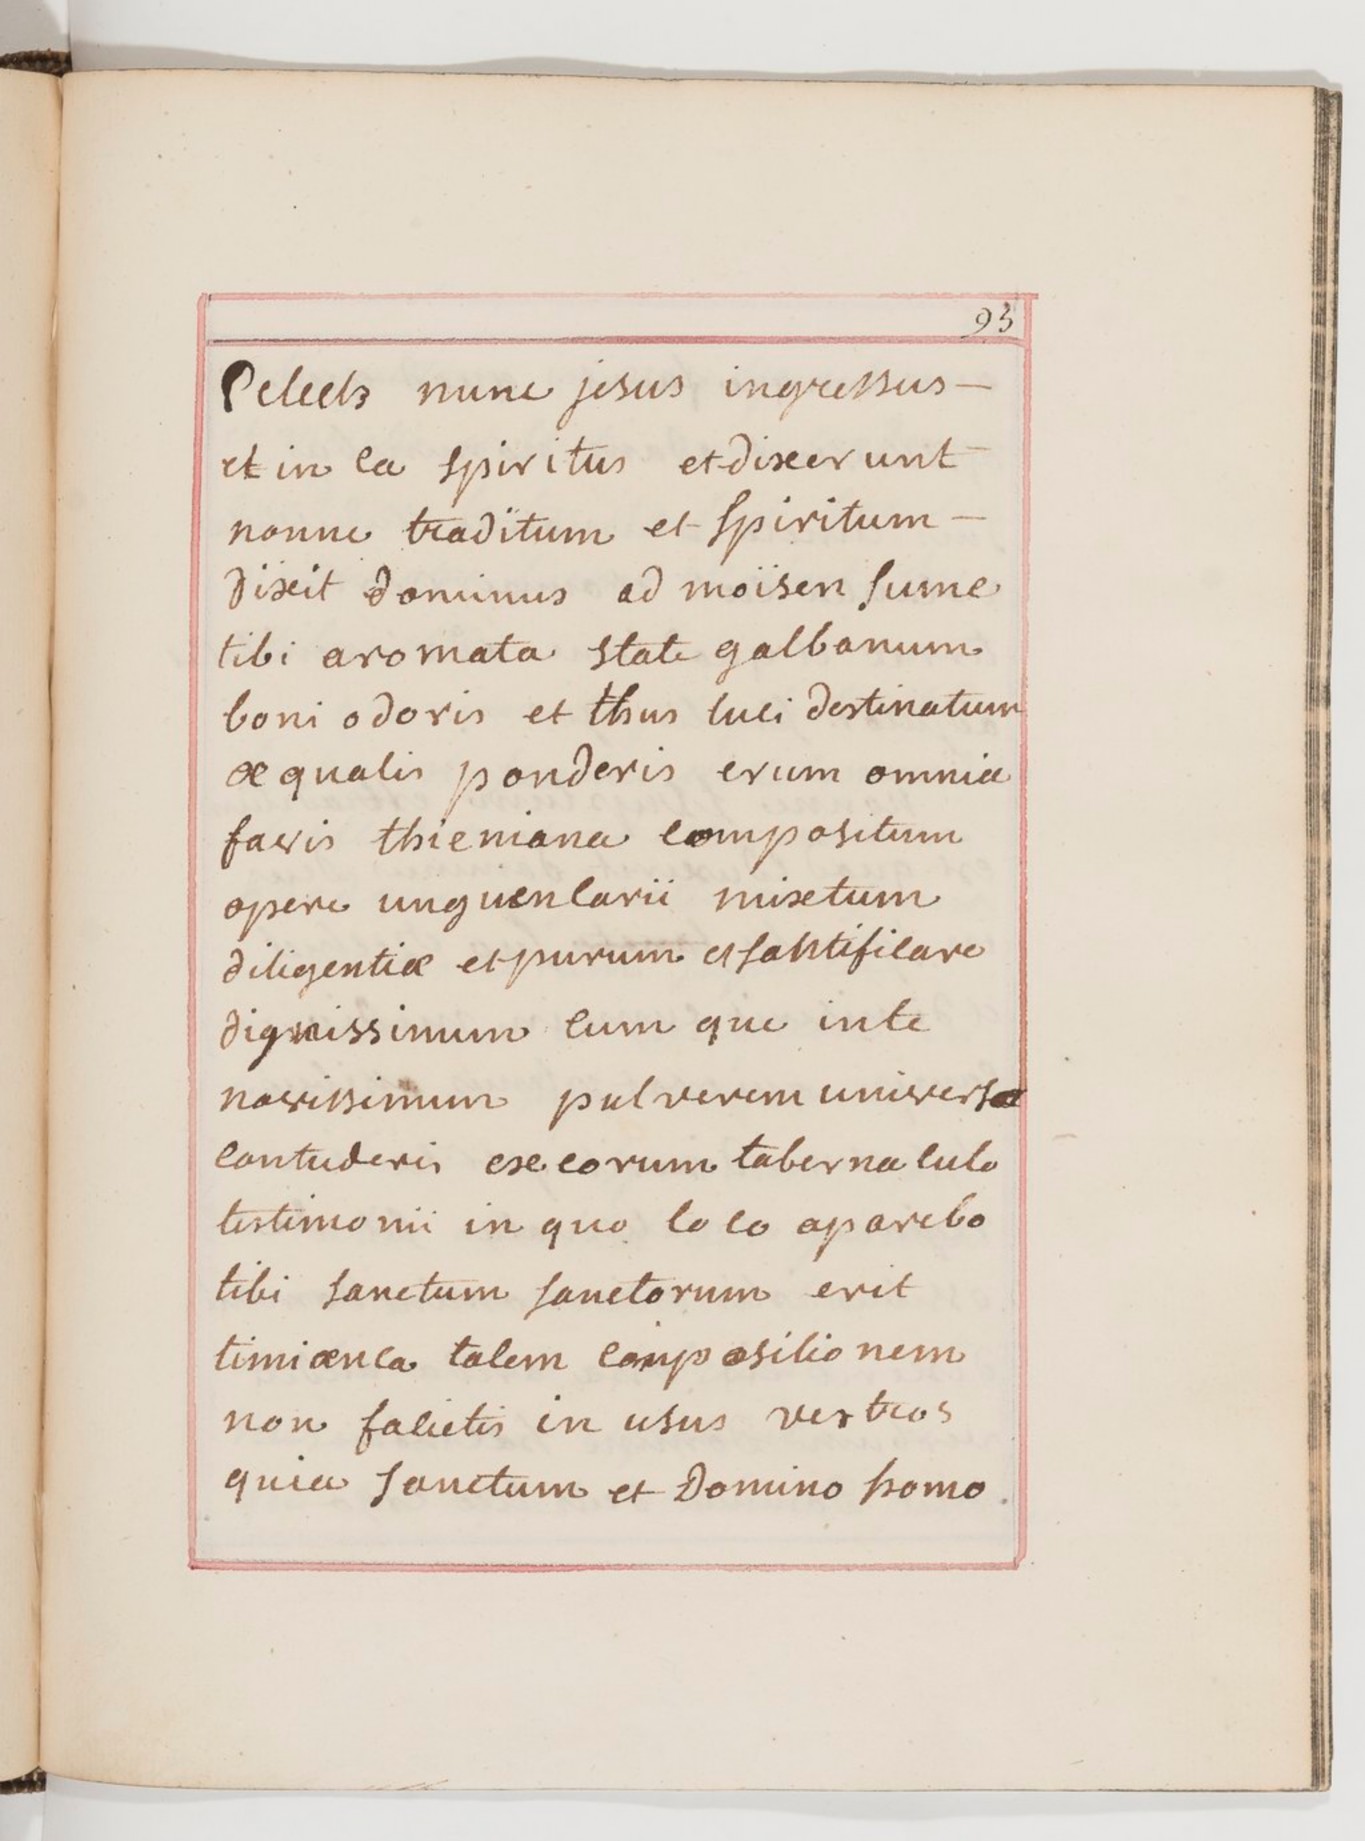 93
Pelech nunc jesus ingressus —
et in ea spiritus et dixerunt
nonne traditum et spiritum —
dixit dominus ad moïsen sume
tibi aromata state galbanum
boni odoris et thus luci destinatum
æqualis ponderis erum omnia
facris thieniana compositum
opere unguenlarii mixtum
diligentiæ et purum et santificare
dignissimum cum que inte
novissimum pulverem universa
contuderis ex eorum tabernaculo
testimonii in quo loco aparebo
tibi sanctum sanctorum erit
timiænca talem composilionem
non falietis in usus vestros
quia sanctum et Domino homo